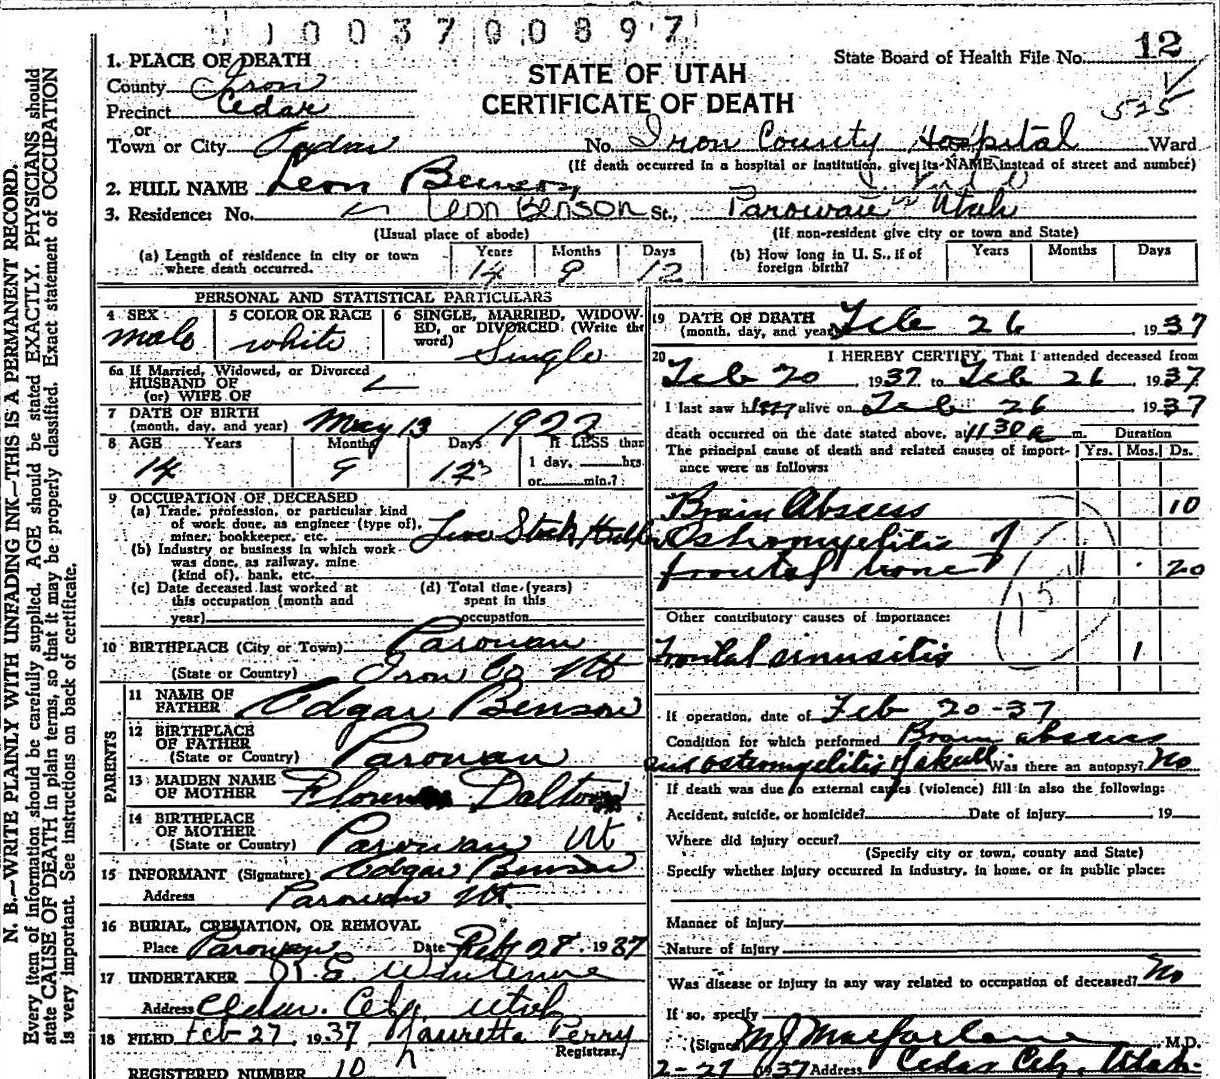 0 0 3 7 0 0 8 9 7
State Board of Health File No. 12
525
STATE OF UTAH
CERTIFICATE OF DEATH
1. PLACE OF DEATH
County Iron
Precinct Cedar
or
Town or City Cedar No. Iron County Hospital Ward
(If death occurred in a hospital or institution, give its NAME instead of street and number)
2. FULL NAME Leon Benson
3. Residence: No. Leon Benson St., Parowan Utah
(Usual place of abode) (If non-resident give city or town and State)
(a) Length of residence in city or town where death occurred. Years 14 Months 9 Days 12
(b) How long in U. S., if of foreign birth? Years Months Days
PERSONAL AND STATISTICAL PARTICULARS
4 SEX male
5 COLOR OR RACE white
6 SINGLE, MARRIED, WIDOWED, or DIVORCED (Write the word) Single
6a If Married, Widowed, or Divorced
HUSBAND OF
(or) WIFE OF
7 DATE OF BIRTH
(month, day, and year) May 13 1922
8 AGE Years 14 Months 9 Days 13 If LESS than
1 day, hrs.
or min.?
9 OCCUPATION OF DECEASED
(a) Trade, profession, or particular kind
of work done, as engineer (type of),
miner, bookkeeper, etc. Live Stock Helper
(b) Industry or business in which work
was done, as railway, mine
(kind of), bank, etc.
(c) Date deceased last worked at
this occupation (month and
year)
(d) Total time (years)
spent in this
occupation
10 BIRTHPLACE (City or Town) Parowan
(State or Country) Iron Co Ut
PARENTS
11 NAME OF
FATHER Edgar Benson
12 BIRTHPLACE
OF FATHER
(State or Country) Parowan
13 MAIDEN NAME
OF MOTHER Dalton
14 BIRTHPLACE
OF MOTHER
(State or Country) Parowan Ut
15 INFORMANT (Signature) Edgar Benson
Address Parowan Ut.
16 BURIAL, CREMATION, OR REMOVAL
Place Parowan Date Feb 28. 1937
17 UNDERTAKER
Address Cedar City Utah
18 FILED Feb-27, 1937 Lauretta Perry
Registrar
REGISTERED NUMBER 10
19 DATE OF DEATH
(month, day, and year) Feb 26, 1937
20 I HEREBY CERTIFY, That I attended deceased from
Feb 20, 1937 to Feb 26, 1937
I last saw him alive on Feb 26 1937
death occurred on the date stated above, at 1130a m. Duration
The principal cause of death and related causes of importance were as follows: Yrs. Mos. Ds.
Brain Abscess 10
Osteomyelitis of
frontal bone 20
15
Other contributory causes of importance:
Frontal sinusitis 1
If operation, date of Feb 20-37
Condition for which performed Brain abscess
and osteomyelitis of skull. Was there an autopsy? No
If death was due to external causes (violence) fill in also the following:
Accident, suicide, or homicide? Date of injury 19
Where did injury occur?
(Specify city or town, county and State)
Specify whether injury occurred in industry, in home, or in public place:
Manner of injury
Nature of injury
Was disease or injury in any way related to occupation of deceased? No
If so, specify
(Signed) M J Macfarlane M.D.
2-27 1937 Address Cedar City, Utah.
N. B.—WRITE PLAINLY WITH UNFADING INK—THIS IS A PERMANENT RECORD.
Every item of information should be carefully supplied. AGE should be stated EXACTLY. PHYSICIANS should
state CAUSE OF DEATH in plain terms, so that it may be properly classified. Exact statement of OCCUPATION
is very important. See instructions on back of certificate.